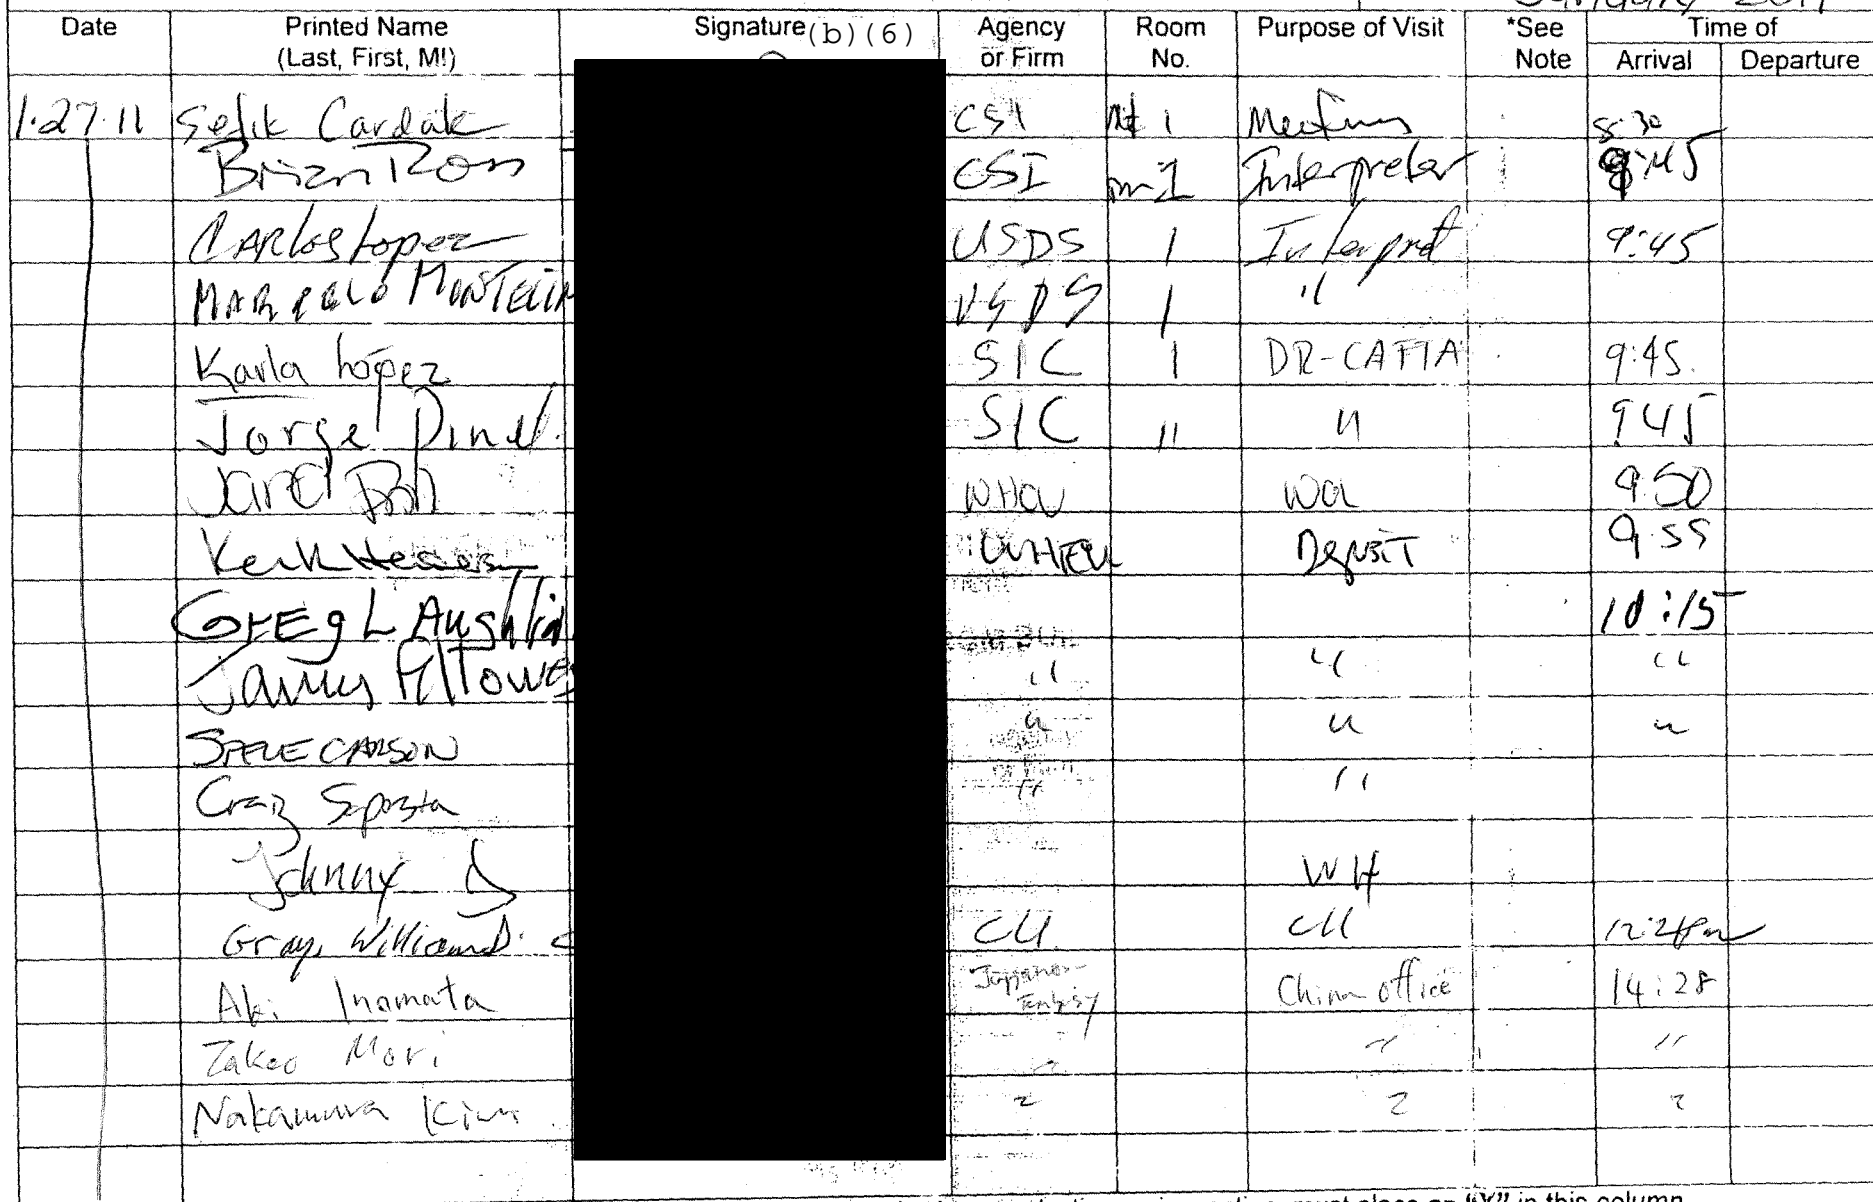 January 2011
Date Printed Name (Last, First, MI) Signature (b)(6) Agency or Firm Room No. Purpose of Visit *See Note Time of Arrival Departure
1.27.11 Sefik Cardak CSI 1 Meeting 8:30
Brian Ross CSI rm 1 Interpreter 9:45
CARlos Lopez USDS 1 Interpret 9:45
MARCELO MONTECIN USDS 1 "
Karla López SIC 1 DR-CAFTA 9:45.
Jorge Pinel. SIC " " 9 45
Jared WHOU 9:50
WHEU Deposit 9:55
GrEg LAughlin 10:15
James Fellowes " " "
STEVE CARSON " " "
Craig " "
Johnny D WH
Gray, William D. CU CU
Aki Inamata Japanese Embassy China office 14:28
Takeo Mori " " "
Nakamura " " "
in this column